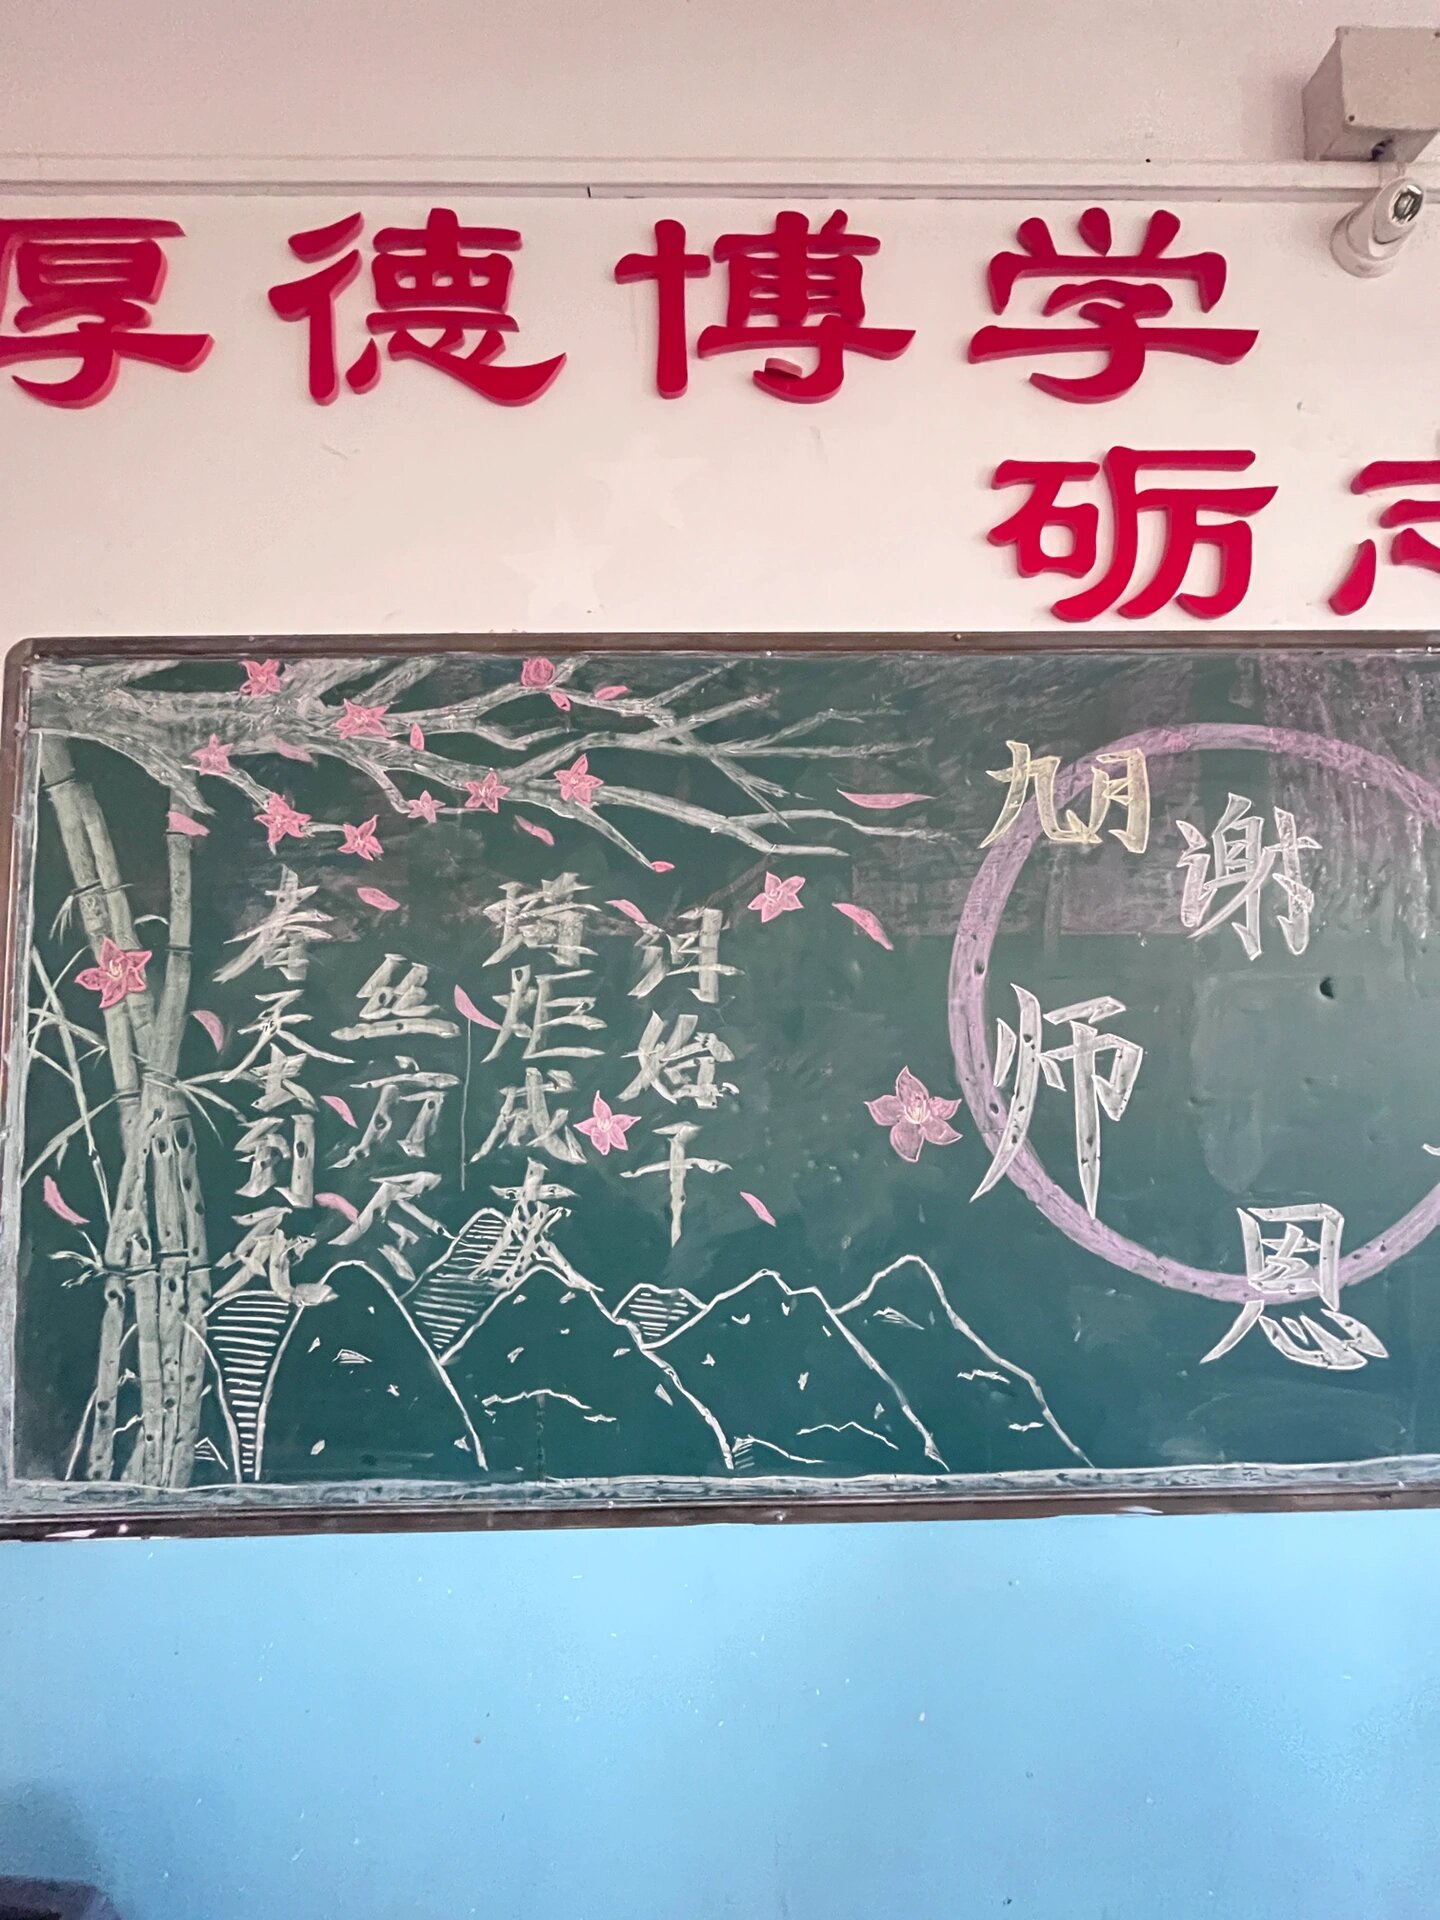 厚德博学
砺
春蚕到死
丝方尽
蜡炬成灰
泪始干
九月
谢
师
恩